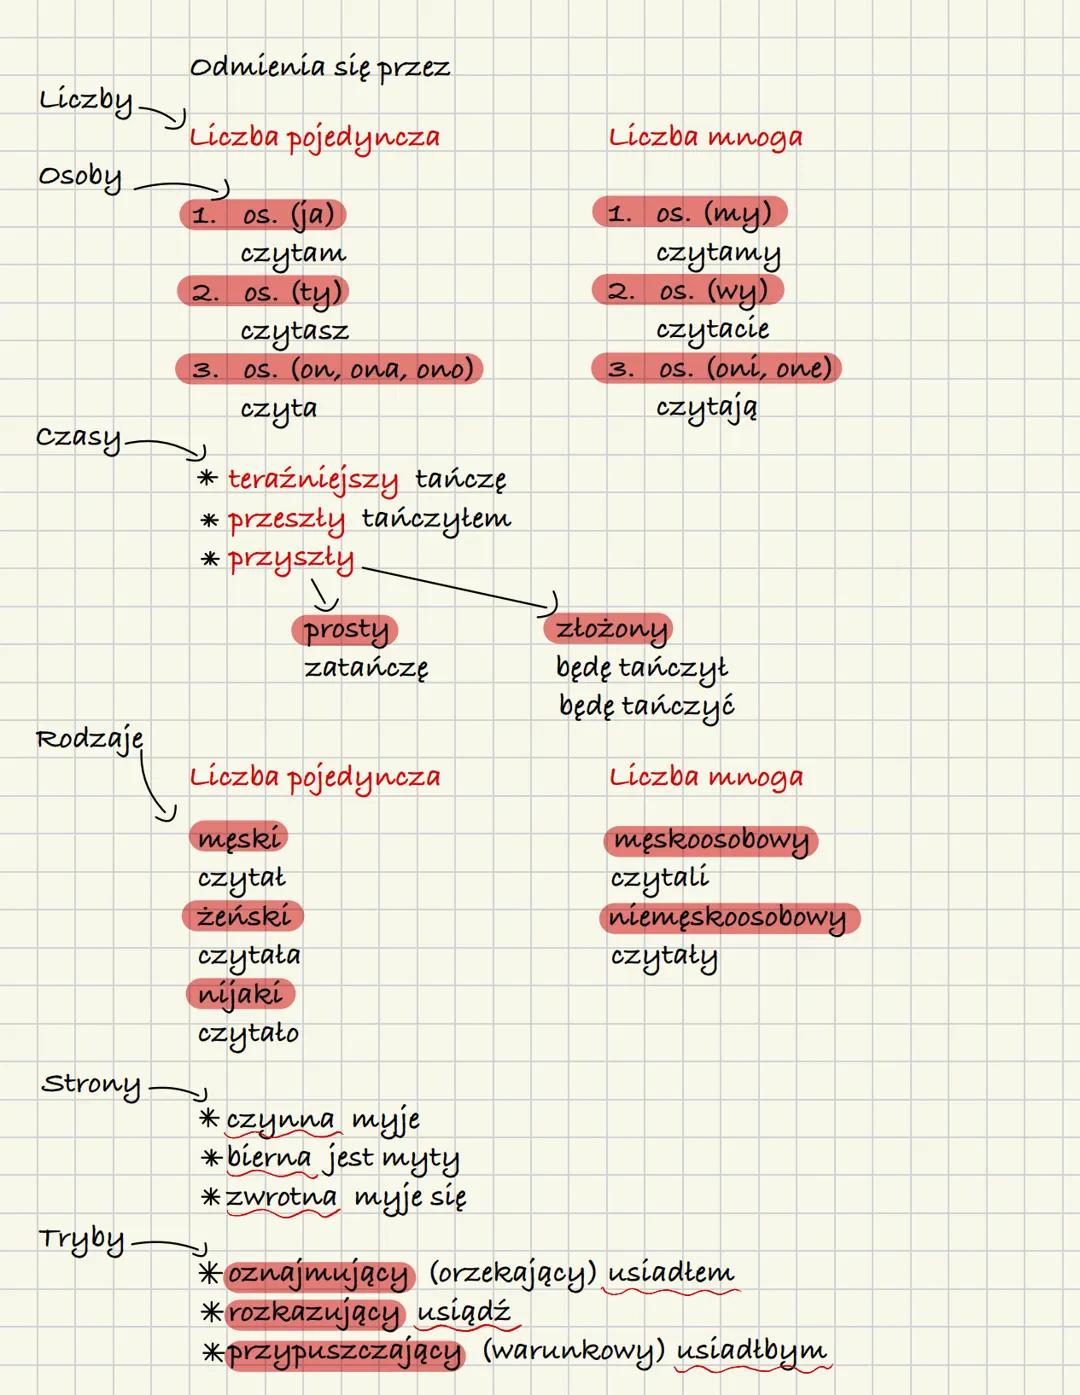 Odmienia się przez
Liczby
Liczba pojedyncza Liczba mnoga
Osoby
1. os. (ja) 1. os. (my)
czytam czytamy
2. os. (ty) 2. os. (wy)
czytasz czytacie
3. os. (on, ona, ono) 3. os. (oni, one)
czyta czytają
Czasy
* teraźniejszy tańczę
* przeszły tańczyłem
* przyszły
prosty złożony
zatańczę będę tańczył
będę tańczyć
Rodzaje
Liczba pojedyncza Liczba mnoga
męski męskoosobowy
czytał czytali
żeński niemęskoosobowy
czytała czytały
nijaki
czytało
Strony
* czynna myje
* bierna jest myty
* zwrotna myje się
Tryby
* oznajmujący (orzekający) usiadłem
* rozkazujący usiądź
* przypuszczający (warunkowy) usiadłbym